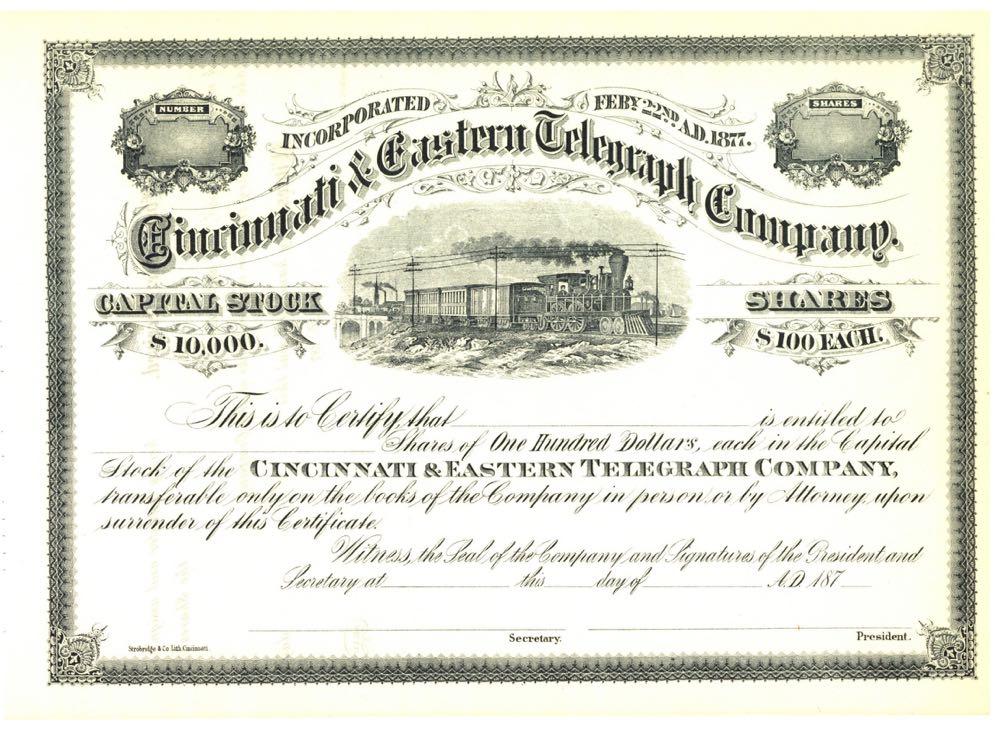 NUMBER
SHARES
INCORPORATED FEBY 22ND A.D. 1877.
Cincinnati & Eastern Telegraph Company.
CAPITAL STOCK
$10,000.
SHARES
$100 EACH.
This is to Certify that is entitled to
Shares of One Hundred Dollars, each in the Capital
Stock of the CINCINNATI & EASTERN TELEGRAPH COMPANY,
transferable only on the books of the Company in person or by Attorney, upon
surrender of this Certificate.
Witness, the Seal of the Company and Signatures of the President and
Secretary at this day of A.D. 187
Secretary.
President.
Strobridge & Co. Lith. Cincinnati.